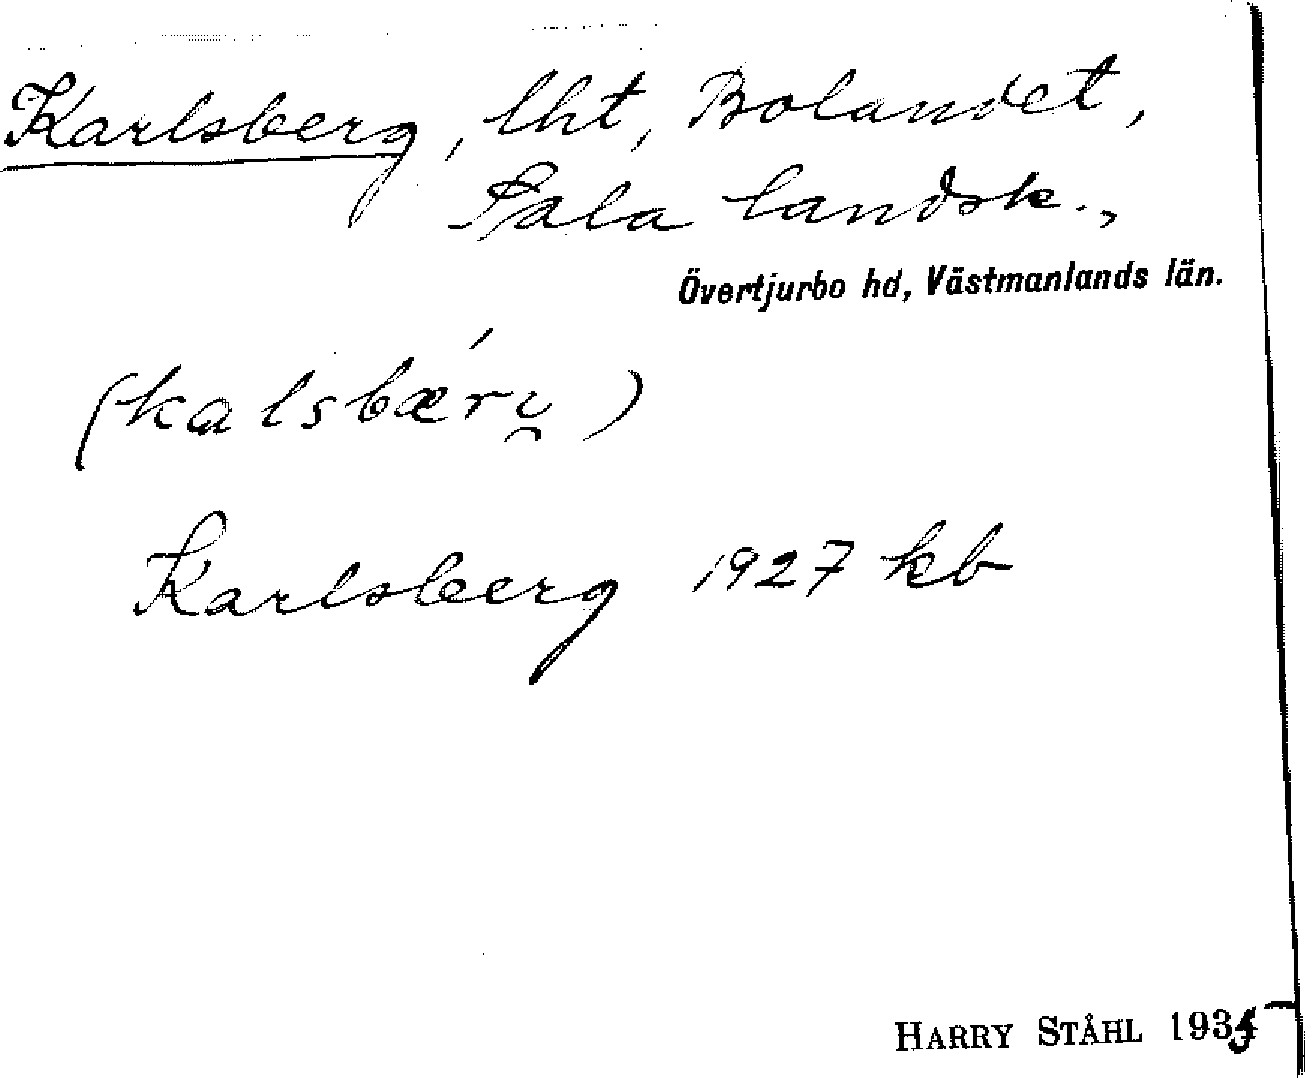 Karlsberg, lht, Bolandet,
Sala landsk.,
Övertjurbo hd, Västmanlands län.
Karlsberg 1927 kb
HARRY STÅHL 1935